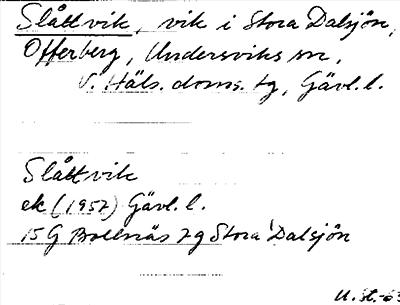 Slåttvik, vik i Stora Dalsjön,
Offerberg, Undersviks sn,
V. Häls. doms. tg, Gävl. l.
Slåttvik
ek (1957) Gävl. l.
15 G Bollnäs 7g Stora Dalsjön
U. St.-63